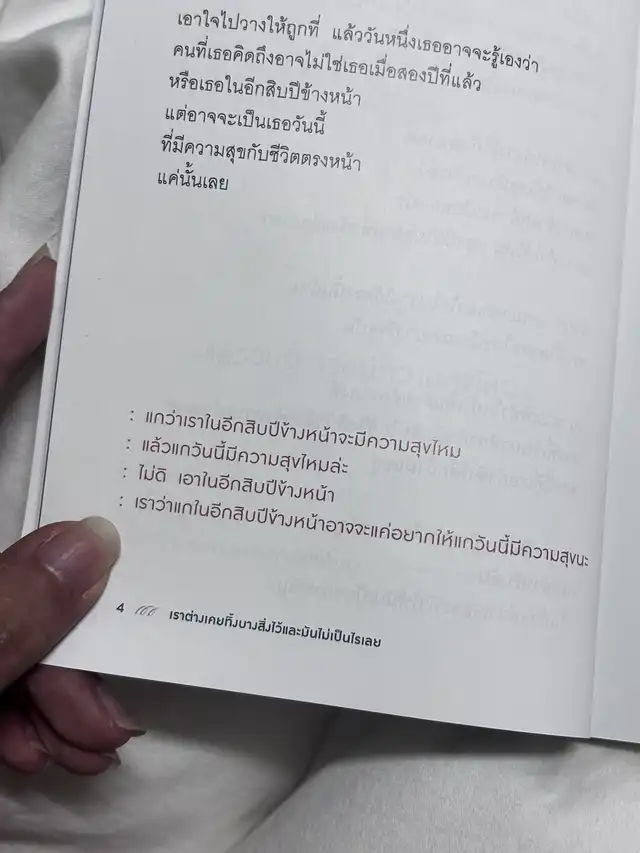 เอาใจไปวางให้ถูกที่ แล้ววันหนึ่งเธออาจจะรู้เองว่า
คนที่เธอคิดถึงอาจไม่ใช่เธอเมื่อสองปีที่แล้ว
หรือเธอในอีกสิบปีข้างหน้า
แต่อาจจะเป็นเธอวันนี้
ที่มีความสุขกับชีวิตตรงหน้า
แค่นั้นเลย
: แกว่าเราในอีกสิบปีข้างหน้าจะมีความสุขไหม
: แล้วแกวันนี้มีความสุขไหมล่ะ
: ไม่ดิ เอาในอีกสิบปีข้างหน้า
: เราว่าแกในอีกสิบปีข้างหน้าอาจจะแค่อยากให้แกวันนี้มีความสุขนะ
4 เราต่างเคยทิ้งบางสิ่งไว้และมันไม่เป็นไรเลย